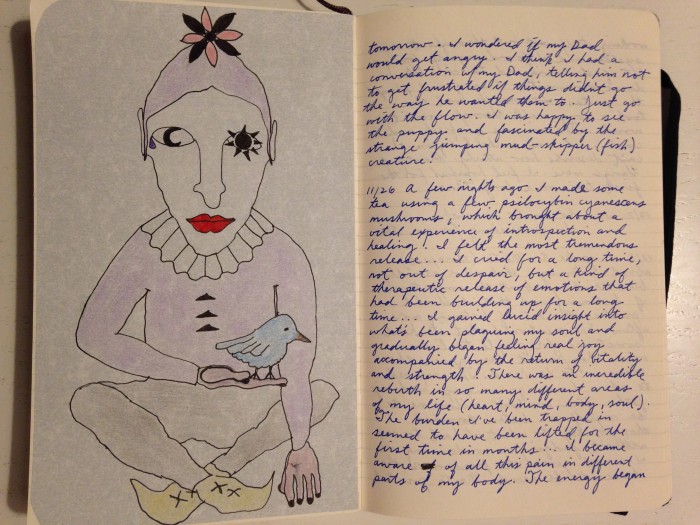 tomorrow. I wondered if my Dad
would get angry. I think I had a
conversation w/ my Dad, telling him not
to get frustrated if things didn't go
the way he wanted them to. Just go
with the flow. I was happy to see
the puppy and fascinated by the
strange jumping mud-skipper (fish)
creature.
11/26 A few nights ago I made some
tea using a few psilocybin cyanescens
mushrooms, which brought about a
vital experience of introspection and
healing! I felt the most tremendous
release.... I cried for a long time,
not out of despair, but a kind of
therapeutic release of emotions that
had been building up for a long
time.... I gained lucid insight into
what's been plaguing my soul and
gradually began feeling real joy
accompanied by the return of vitality
and strength! There was an incredible
rebirth in so many different areas
of my life (heart, mind, body, soul).
The burden I've been trapped in
seemed to have been lifted for the
first time in months... I became
aware of all this pain in different
parts of my body. The energy began